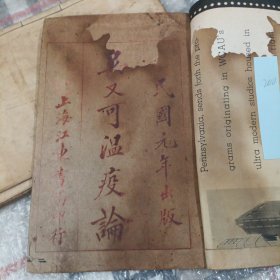 民國元年出版
吳又可溫疫論
上海江東書局發行
Pennsylvania, sends forth the pro-
grams originating in WCAU's
ultra modern studios housed in